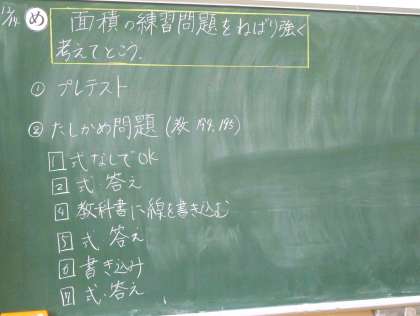 め 面積の練習問題をねばり強く
考えてとこう.
① プレテスト
② たしかめ問題 (教 194. 195)
1 式なしでOK
2 式 答え
4 教科書に線を書き込む
5 式 答え
6 書き込み
7 式.答え